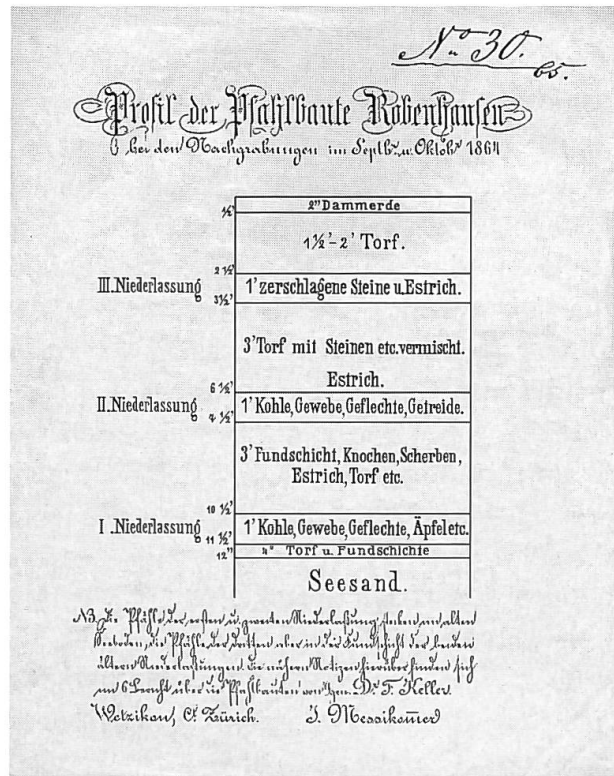 No 30.
65.
Profil der Pfahlbaute Robenhausen
bei den Nachgrabungen im Septbr. u. Oktobr 1864
½' 2" Dammerde
1½'–2' Torf.
2½'
III. Niederlassung 1' zerschlagene Steine u. Estrich.
3½'
3' Torf mit Steinen etc. vermischt.
Estrich.
6½'
II. Niederlassung 1' Kohle, Gewebe, Geflechte, Getreide.
7½'
3' Fundschicht, Knochen, Scherben,
Estrich, Torf etc.
10½'
I. Niederlassung 1' Kohle, Gewebe, Geflechte, Äpfel etc.
11½'
4" Torf u. Fundschichte
12"
Seesand.
NB. Die Pfähle der ersten u. zweiten Niederlaßung stehen im alten
Seeboden, die Pfähle der dritten aber in der Fundschicht der beiden
ältern Niederlaßungen. Die nähern Notizen hierüber finden sich
im 6 Bericht über die Pfahlbauten von Hrn. Dr. F. Keller.
Wetzikon, Ct. Zürich. J. Messikom̄er